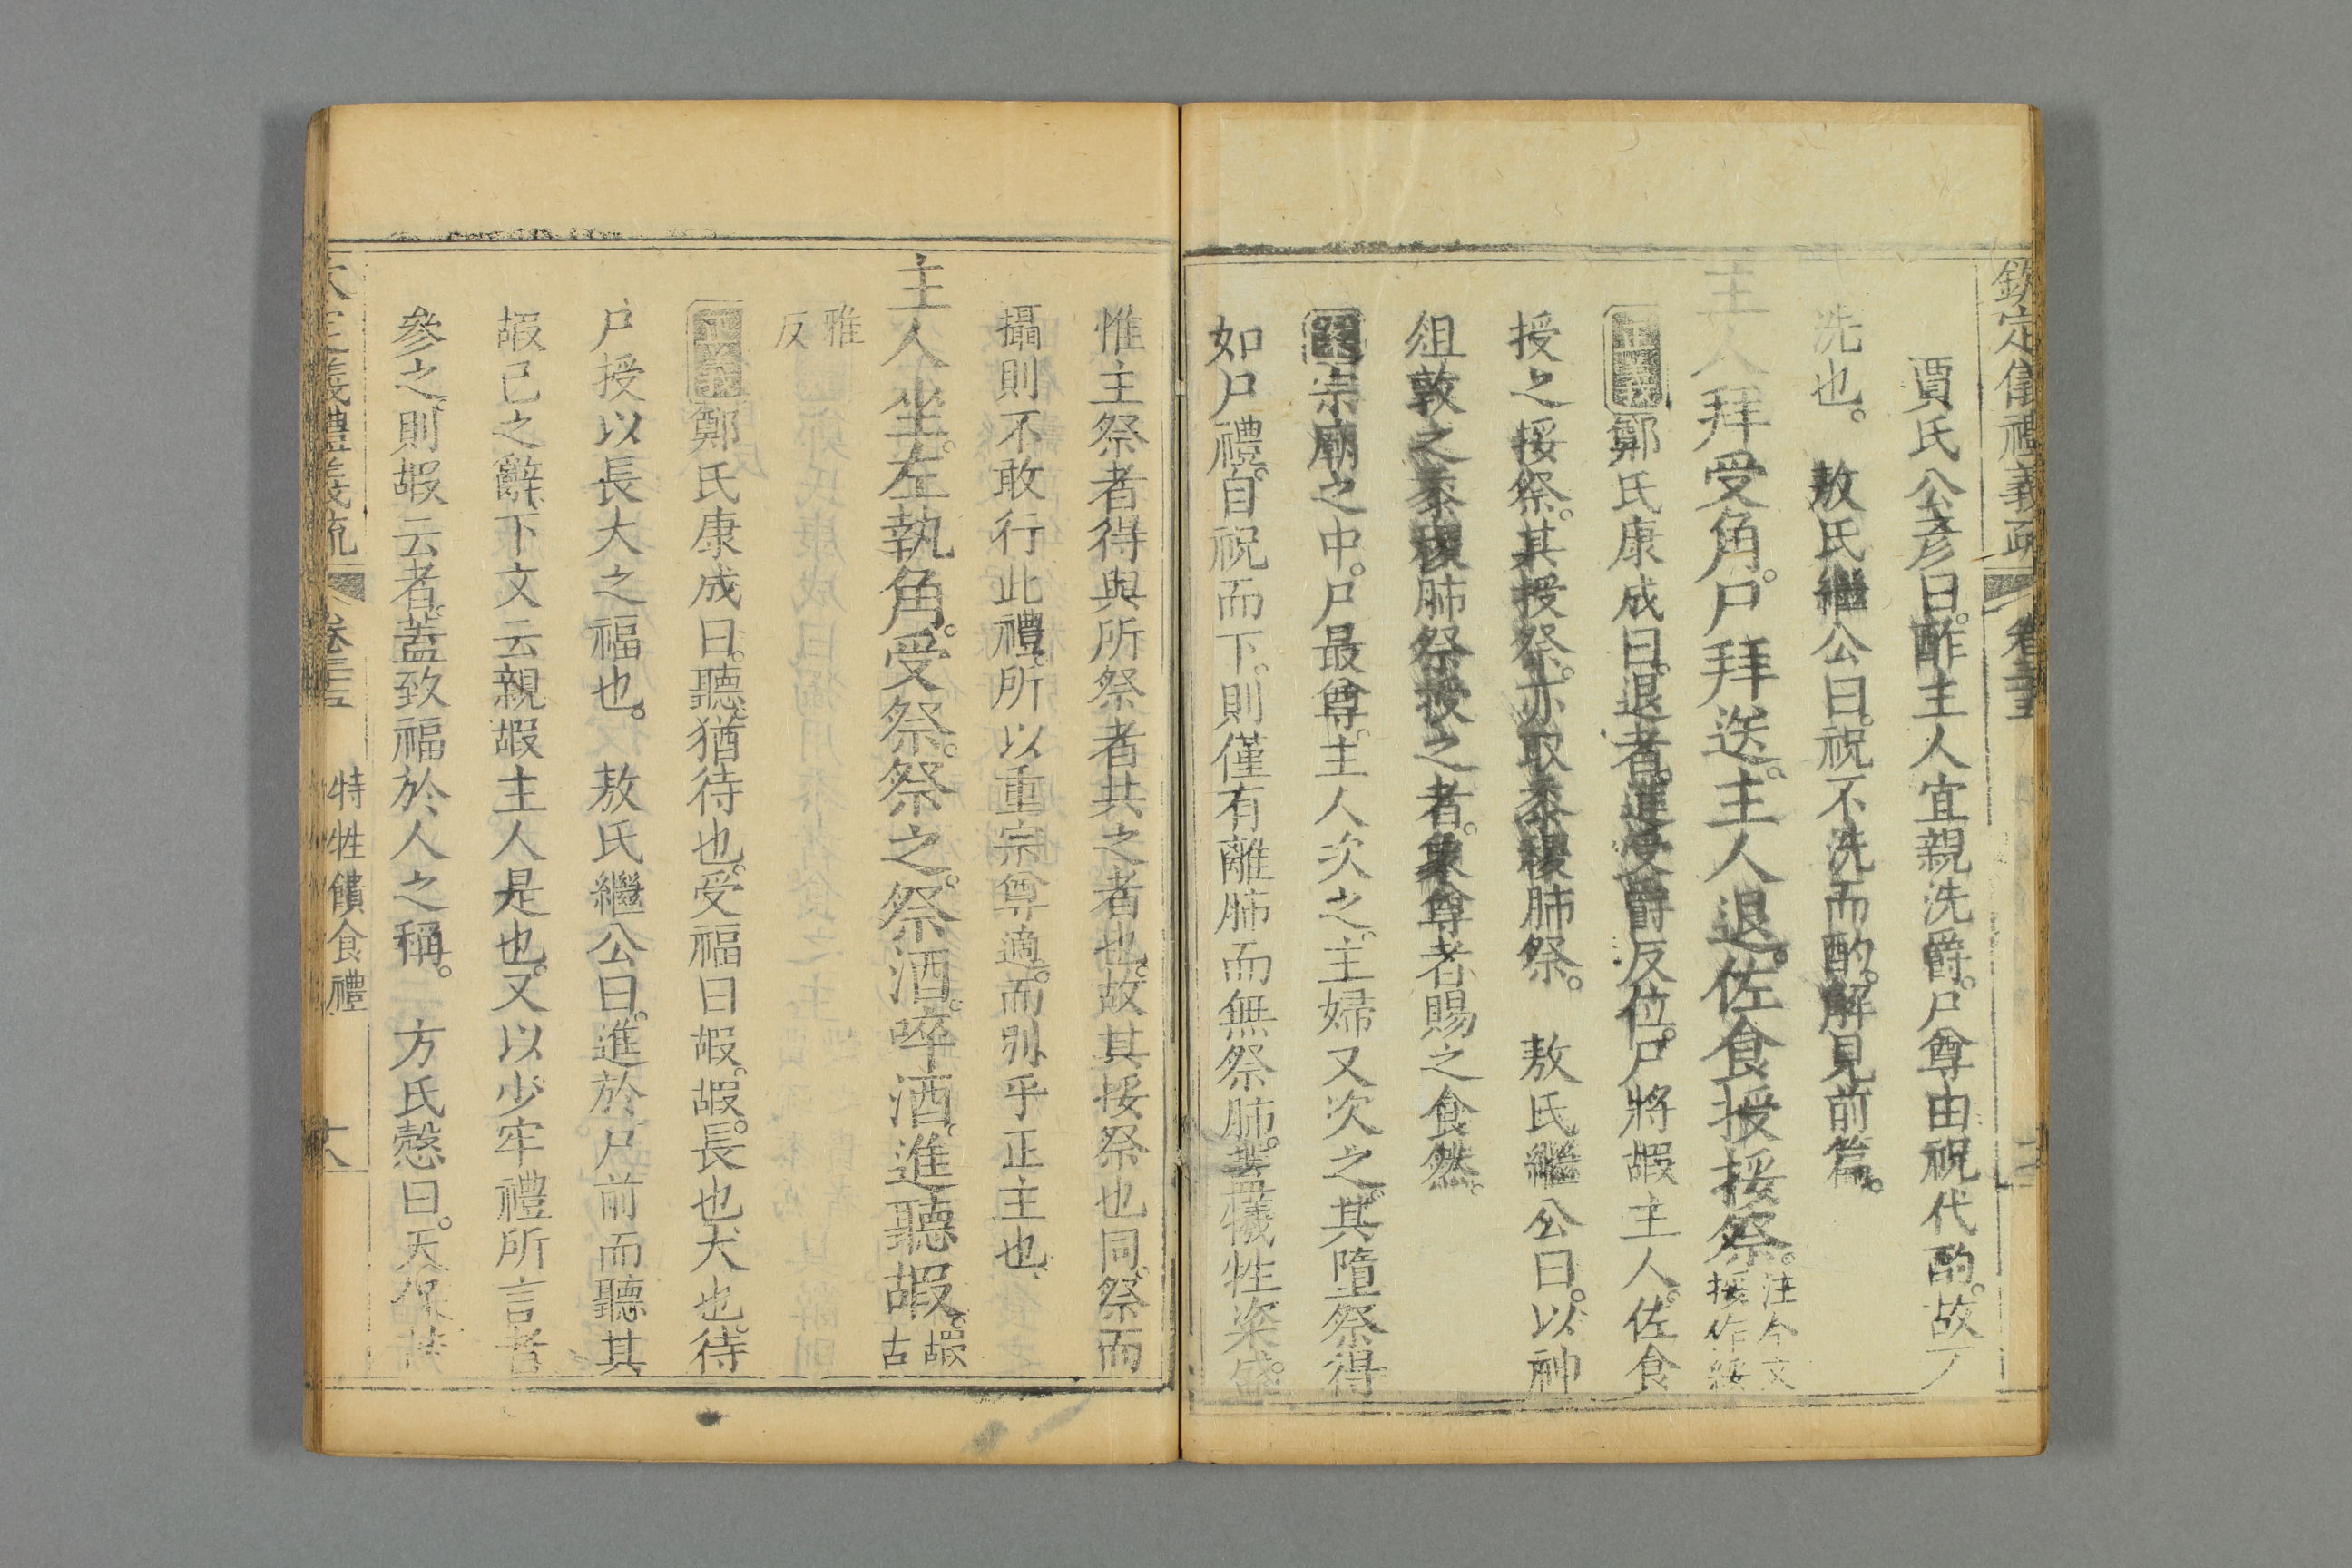 欽定儀禮義疏 卷三十五
賈氏公彥曰酢主人宜親洗爵尸尊由祝代酌故不
洗也。 敖氏繼公曰祝不洗而酌解見前篇。
主人拜受角。尸拜送。主人退。佐食授挼祭。注今文挼作綏
正義鄭氏康成曰退者進受爵反位。尸將嘏主人。佐食
授之挼祭。其授祭。亦取黍稷肺祭。 敖氏繼公曰。以神
俎敦之黍稷肺祭授之者。象尊者賜之食然。
宗廟之中。尸最尊。主人次之。主婦又次之。其墮祭得
如尸禮。自祝而下。則僅有離肺而無祭肺。犧牲粢盛。
惟主祭者得與所祭者共之者也。故其挼祭也同。祭而
攝則不敢行此禮。所以重宗尊適。而別乎正主也
主人坐。左執角。受祭。祭之。祭酒。啐酒。進聽嘏。嘏古
雅反
正義鄭氏康成曰。聽。猶待也。受福曰嘏。嘏。長也大也。待
尸授以長大之福也。 敖氏繼公曰。進於尸前而聽其
嘏己之辭。下文云親嘏主人是也。又以少牢禮所言者
參之則嘏云者。蓋致福於人之稱。 方氏慤曰。天保詩
特牲饋食禮